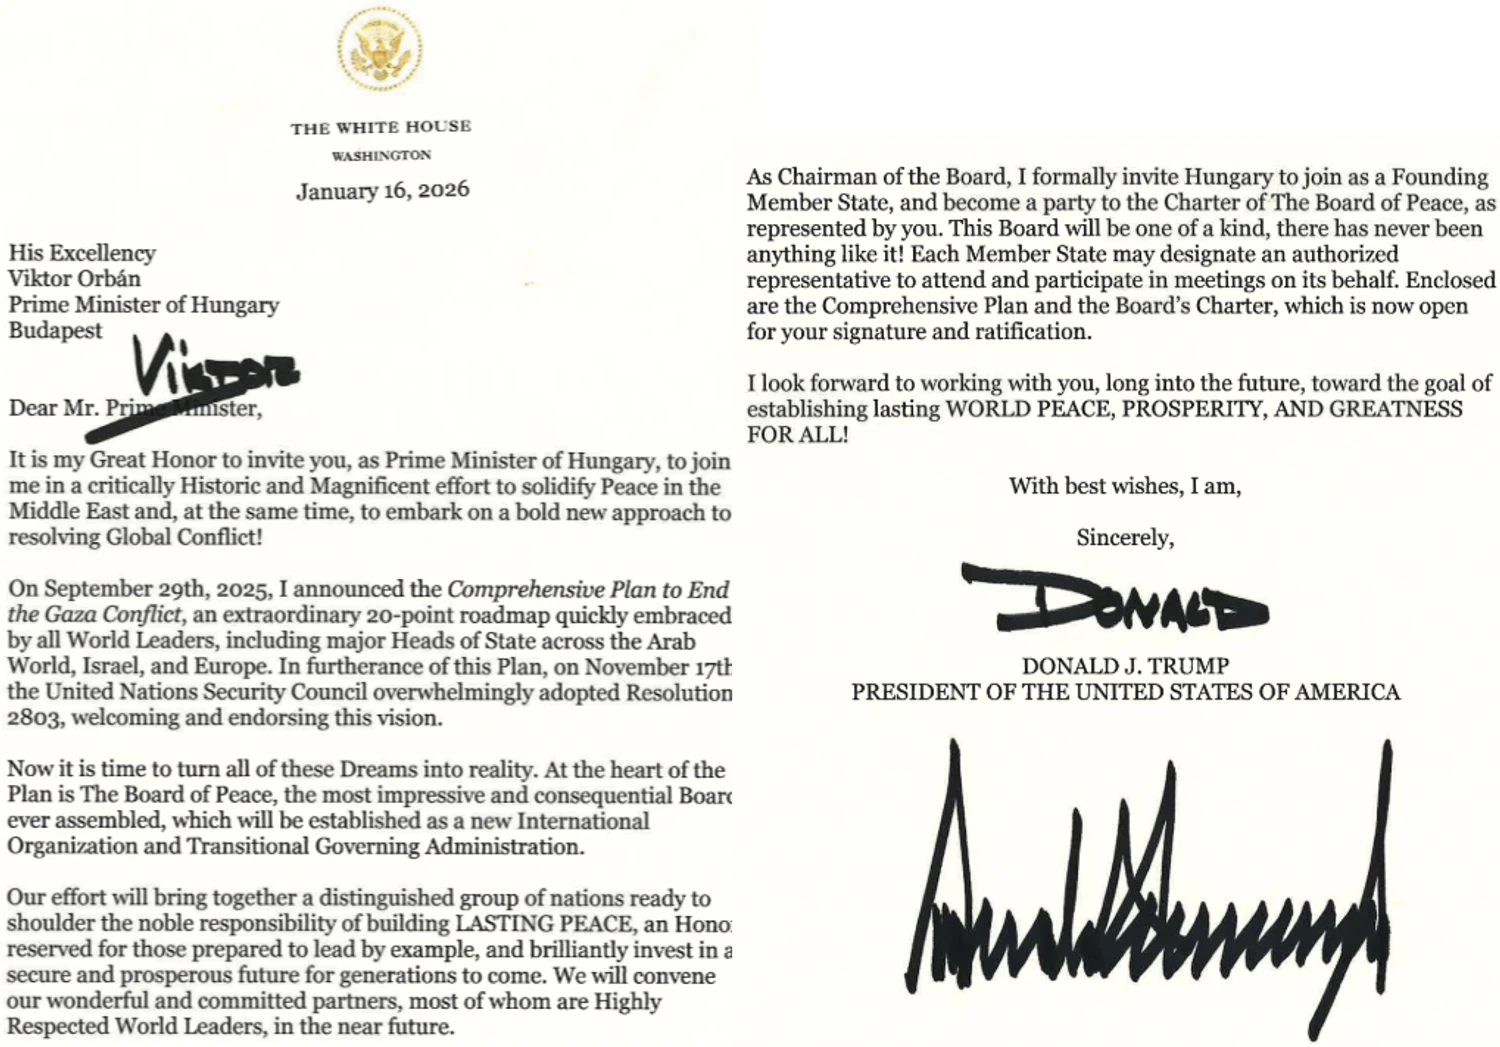 THE WHITE HOUSE
WASHINGTON
January 16, 2026
His Excellency
Viktor Orbán
Prime Minister of Hungary
Budapest
VIKTOR
Dear Mr. Prime Minister,
It is my Great Honor to invite you, as Prime Minister of Hungary, to join
me in a critically Historic and Magnificent effort to solidify Peace in the
Middle East and, at the same time, to embark on a bold new approach to
resolving Global Conflict!
On September 29th, 2025, I announced the Comprehensive Plan to End
the Gaza Conflict, an extraordinary 20-point roadmap quickly embraced
by all World Leaders, including major Heads of State across the Arab
World, Israel, and Europe. In furtherance of this Plan, on November 17th
the United Nations Security Council overwhelmingly adopted Resolution
2803, welcoming and endorsing this vision.
Now it is time to turn all of these Dreams into reality. At the heart of the
Plan is The Board of Peace, the most impressive and consequential Board
ever assembled, which will be established as a new International
Organization and Transitional Governing Administration.
Our effort will bring together a distinguished group of nations ready to
shoulder the noble responsibility of building LASTING PEACE, an Hono
reserved for those prepared to lead by example, and brilliantly invest in a
secure and prosperous future for generations to come. We will convene
our wonderful and committed partners, most of whom are Highly
Respected World Leaders, in the near future.
As Chairman of the Board, I formally invite Hungary to join as a Founding
Member State, and become a party to the Charter of The Board of Peace, as
represented by you. This Board will be one of a kind, there has never been
anything like it! Each Member State may designate an authorized
representative to attend and participate in meetings on its behalf. Enclosed
are the Comprehensive Plan and the Board's Charter, which is now open
for your signature and ratification.
I look forward to working with you, long into the future, toward the goal of
establishing lasting WORLD PEACE, PROSPERITY, AND GREATNESS
FOR ALL!
With best wishes, I am,
Sincerely,
DONALD
DONALD J. TRUMP
PRESIDENT OF THE UNITED STATES OF AMERICA